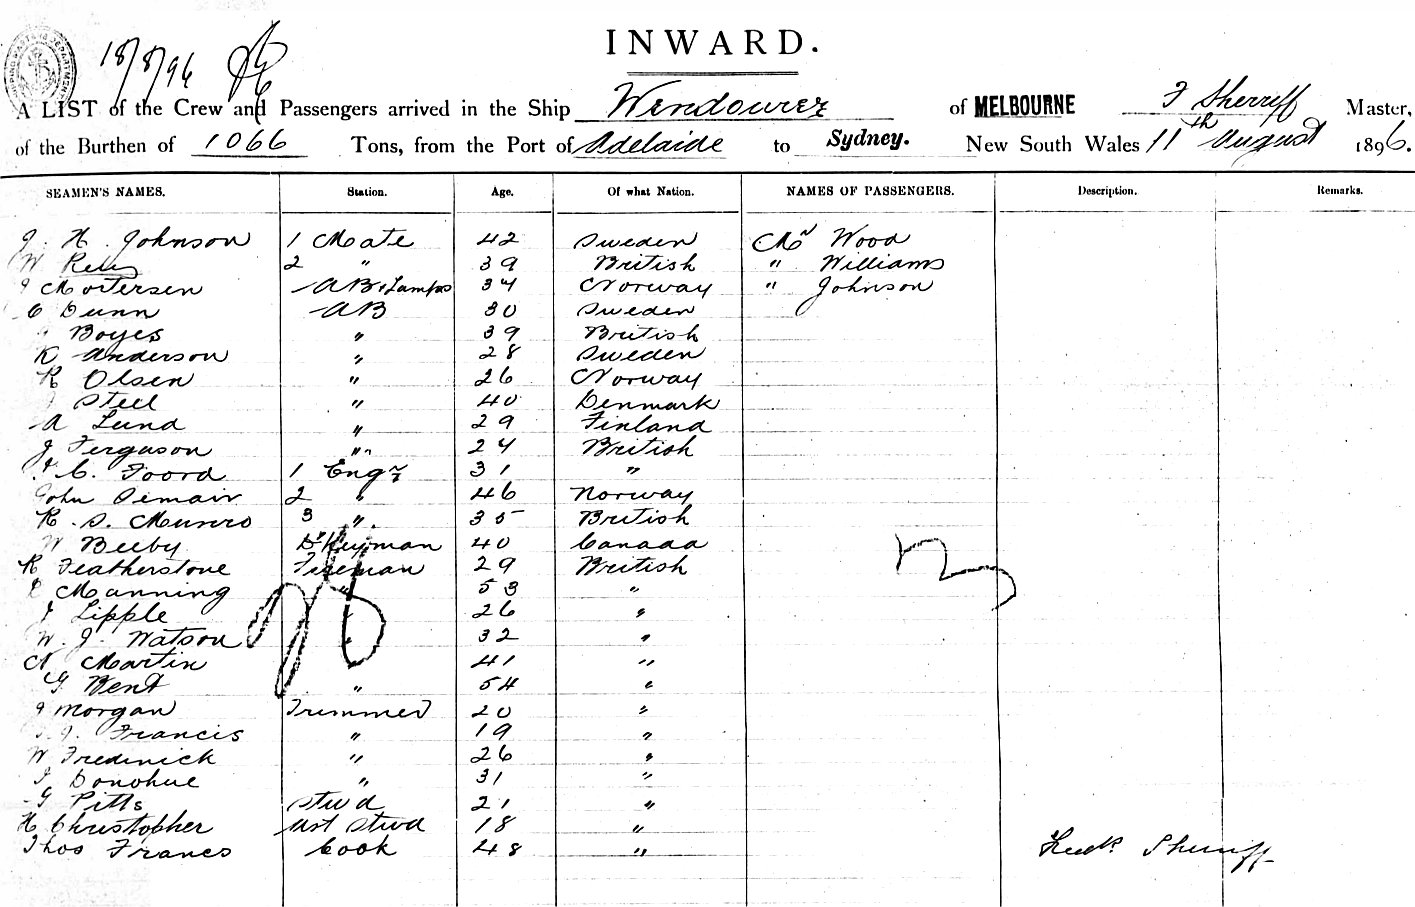 18/8/96
INWARD.
A LIST of the Crew and Passengers arrived in the Ship Wendouree of MELBOURNE F Sherriff Master,
of the Burthen of 1066 Tons, from the Port of Adelaide to Sydney. New South Wales 11th August 1896.
SEAMEN'S NAMES. Station. Age. Of what Nation. NAMES OF PASSENGERS. Description. Remarks.
J. H. Johnson 1 Mate 42 Sweden Mr Wood
W 2 " 39 British " Williams
Mortersen AB & Lamps 34 Norway " Johnson
C Dunn AB 30 Sweden
Boyes " 39 British
K Anderson " 28 Sweden
R Olsen " 26 Norway
Steel " 40 Denmark
A Lund " 29 Finland
J Ferguson " 24 British
C. Foord 1 Engr 31 "
John 2 " 46 Norway
R. S. Munro 3 " 35 British
W Beeby Dkyman 40 Canada
R Featherstone Fireman 29 British
Manning " 53 "
J Lipple " 26 "
W. J. Watson " 32 "
N Martin " 41 "
G Bent " 54 "
J Morgan Trimmer 20 "
J. Francis " 19 "
W Frederick " 26 "
Donohue " 31 "
G Pitts Stwd 21 "
H Christopher Asst Stwd 18 "
Thos Frances Cook 48 "
Fredk Sherriff